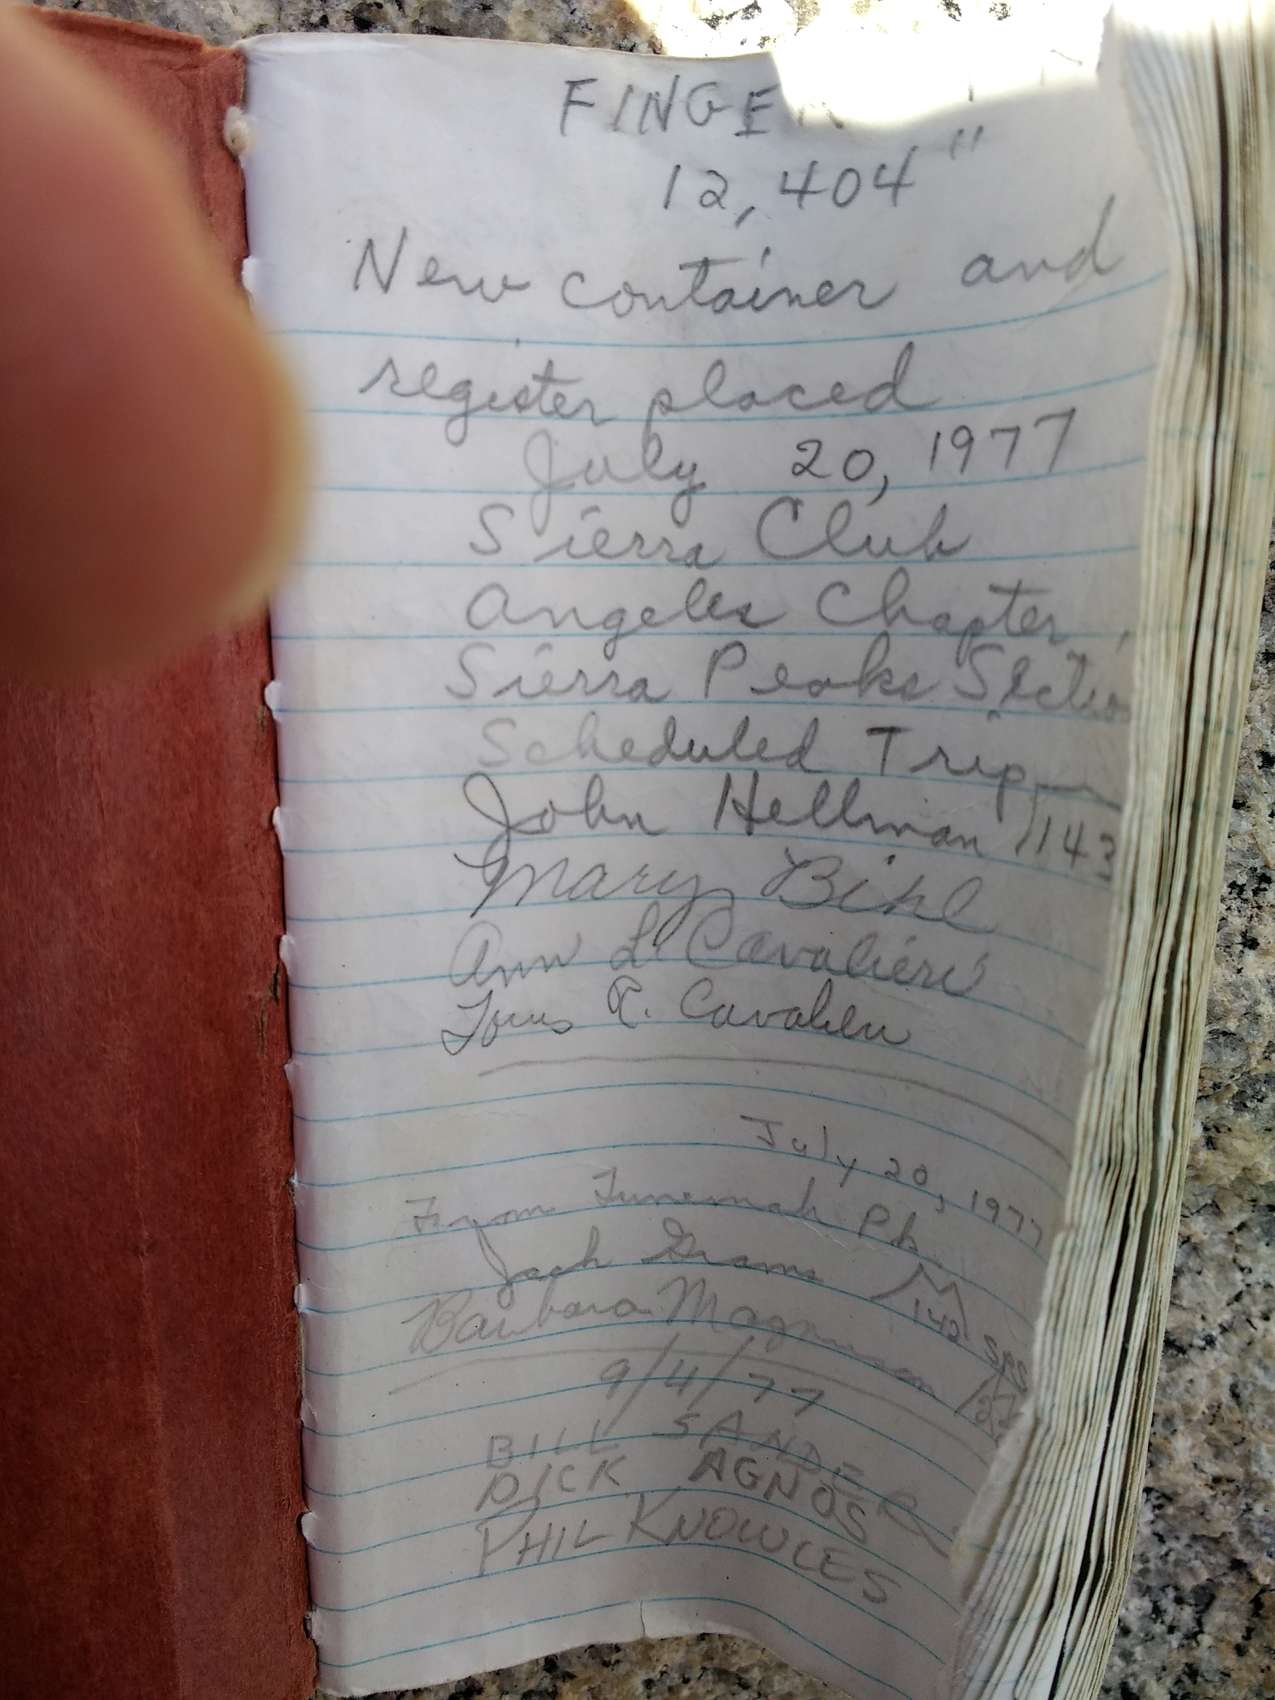 FINGER
12,404"
New container and
register placed
July 20, 1977
Sierra Club
Angeles Chapter,
Sierra Peaks Sectio
Scheduled Trip
John Hellman 143
Mary Bihl
Ann L Cavalieri
R. Cavalieri
July 20, 1977
From Tunemah Pk.
Jack Grams 142 SPS
Barbara Magnuson
9/4/77
BILL SANDER
DICK AGNOS
PHIL KNOWLES